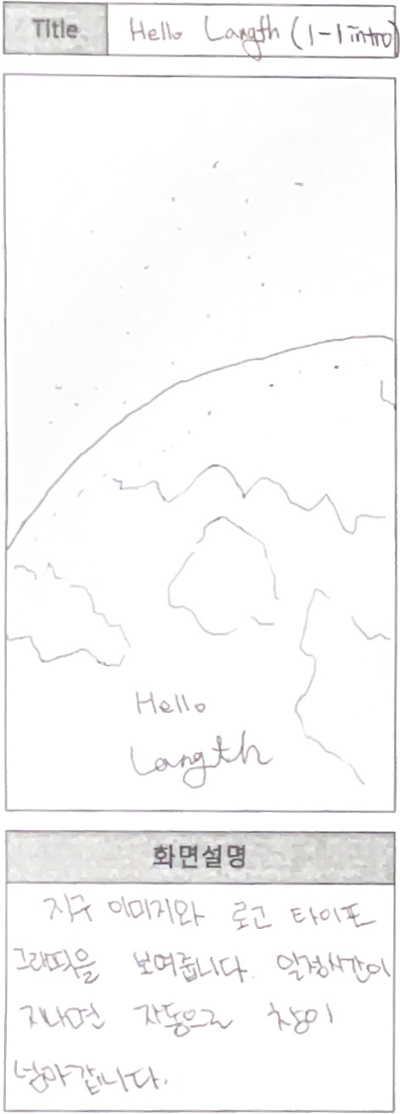 Title Hello Langth (1-1 intro)
Hello
Langth
화면설명
지구 이미지와 로고 타이포
그래픽을 보여줍니다. 일정시간이
지나면 자동으로 창이
넘어갑니다.